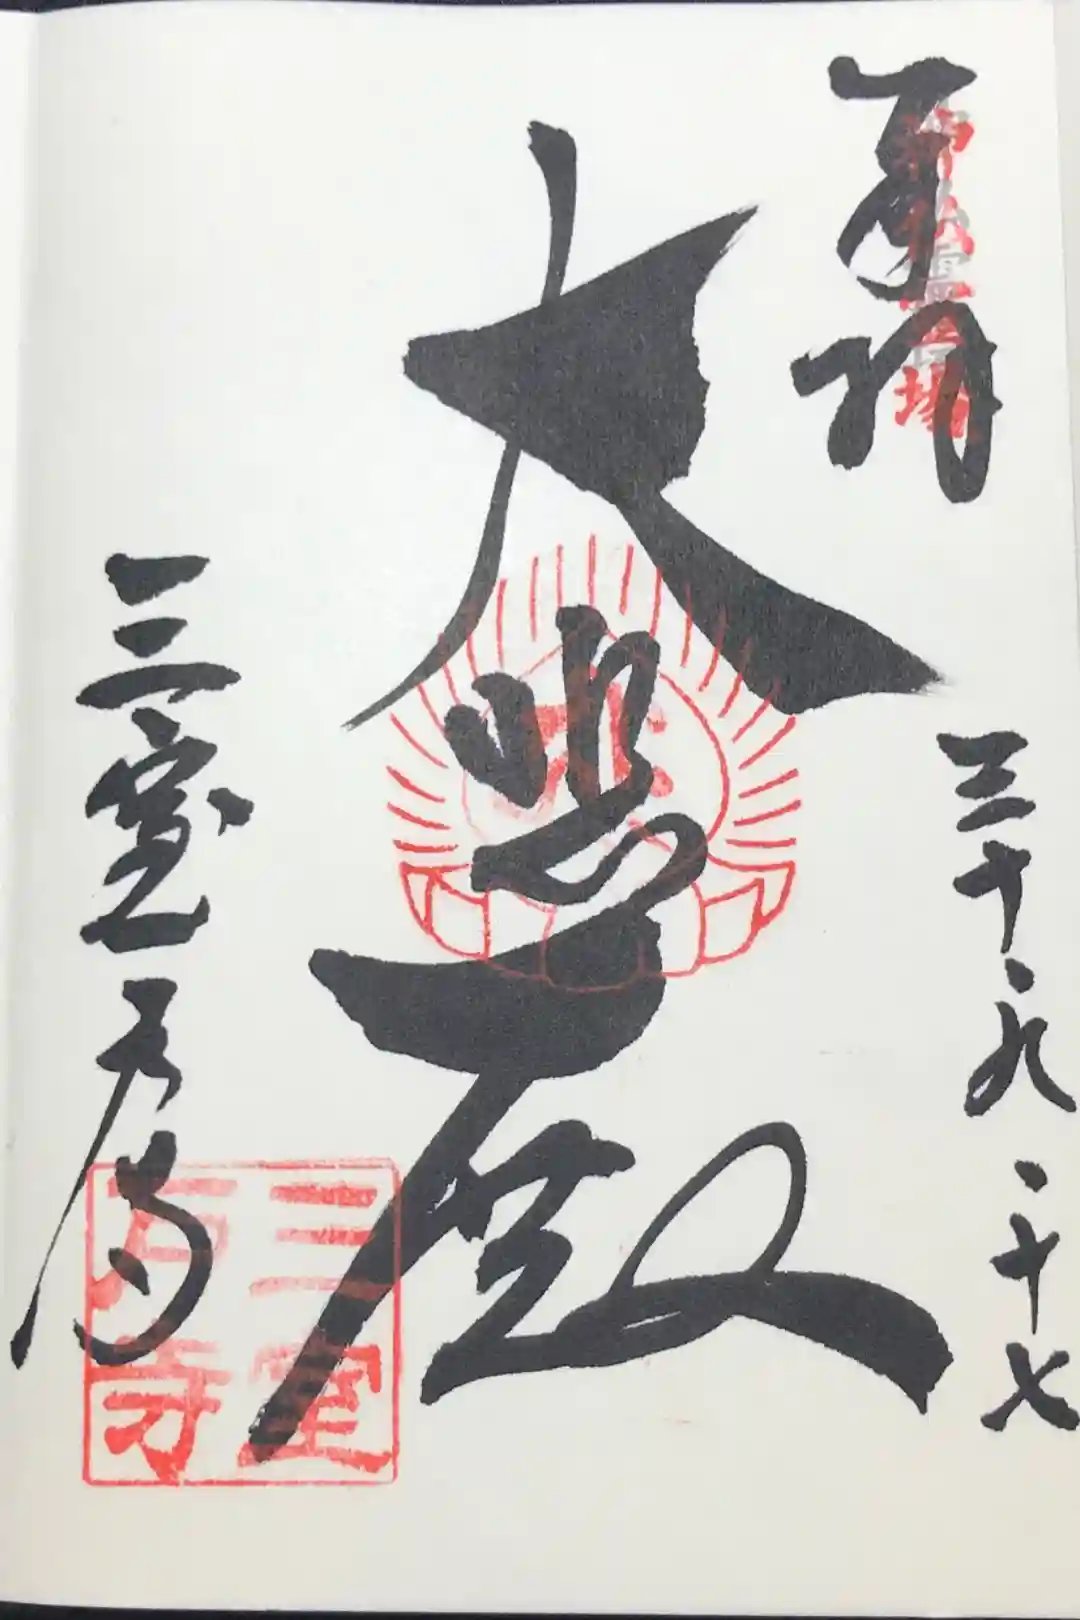 奉拝
神仏霊場
三十、九、十七
大悲殿
三室戸寺
三室
戸寺